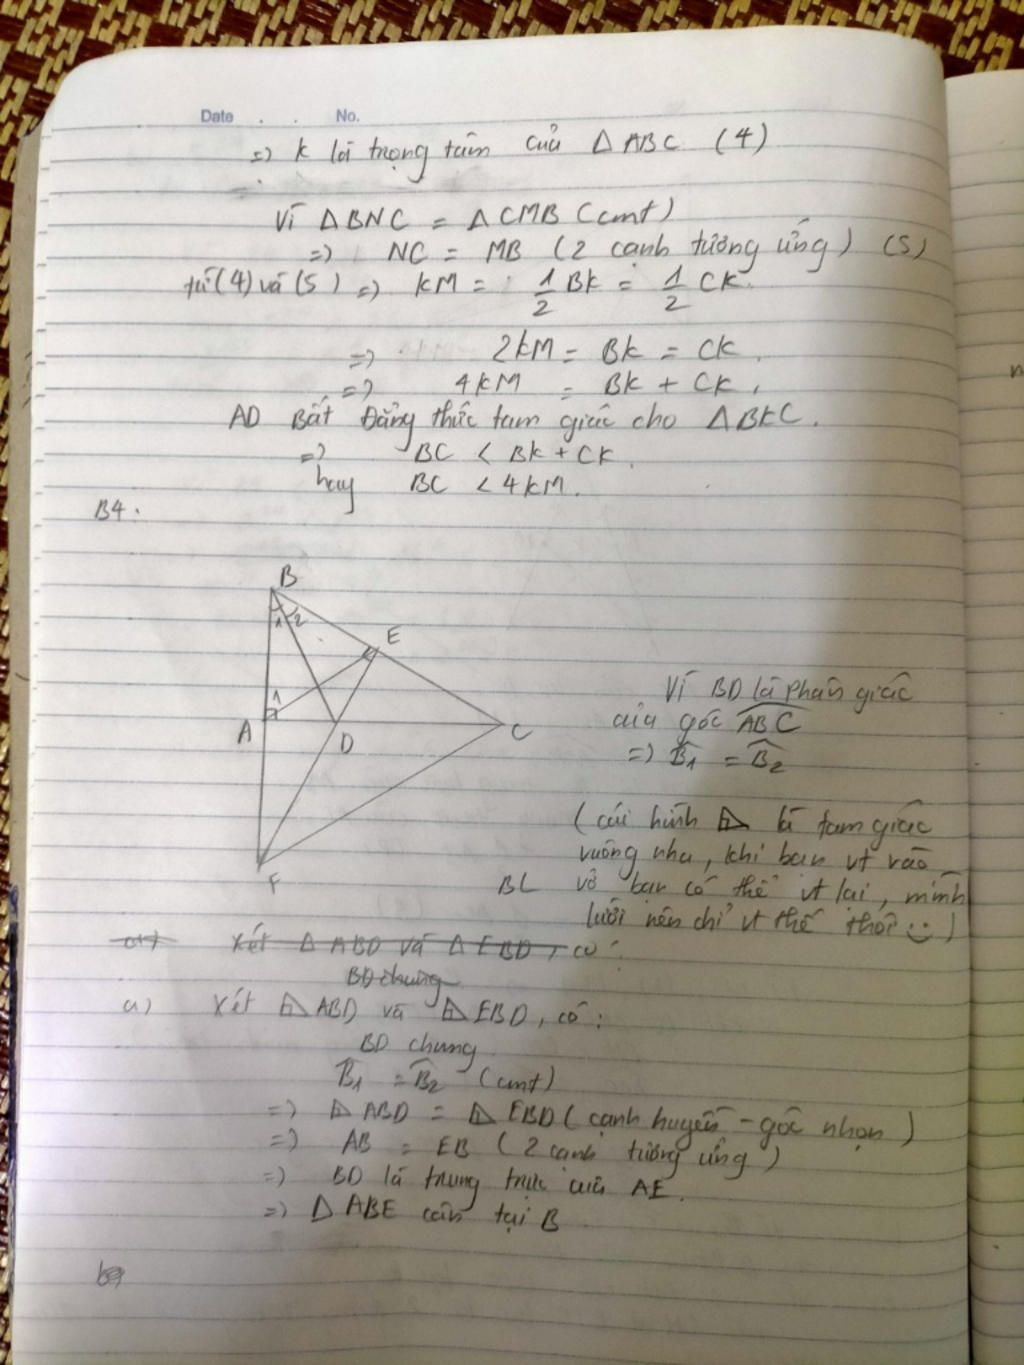 Date . . No.
=) K là trọng tâm của Δ ABC (4)
Vì Δ BNC = Δ CMB (cmt)
=) NC = MB (2 cạnh tương ứng) (5)
từ (4) và (5) =) KM = 1/2 BK = 1/2 CK.
=) 2KM = BK = CK.
=) 4KM = BK + CK.
AD Bất Đẳng thức tam giác cho Δ BKC.
=) BC < BK + CK.
hay BC < 4KM.
B4:
B
1 2
E
1
A
D
C
F
Vì BD là phân giác
của góc ABC
=) B1 = B2
(cái hình ⊿ là tam giác
vuông nha, khi bạn vt vào
BL vở bạn có thể vt lại, mình
lười nên chỉ vt thế thôi :))
a) Xét Δ ABD và Δ EBD, có:
BD chung
a) Xét ⊿ ABD và ⊿ EBD, có:
BD chung
B1 = B2 (cmt)
=) ⊿ ABD = ⊿ EBD (cạnh huyền - góc nhọn)
=) AB = EB (2 cạnh tương ứng)
=) BD là trung trực của AE.
=) Δ ABE cân tại B